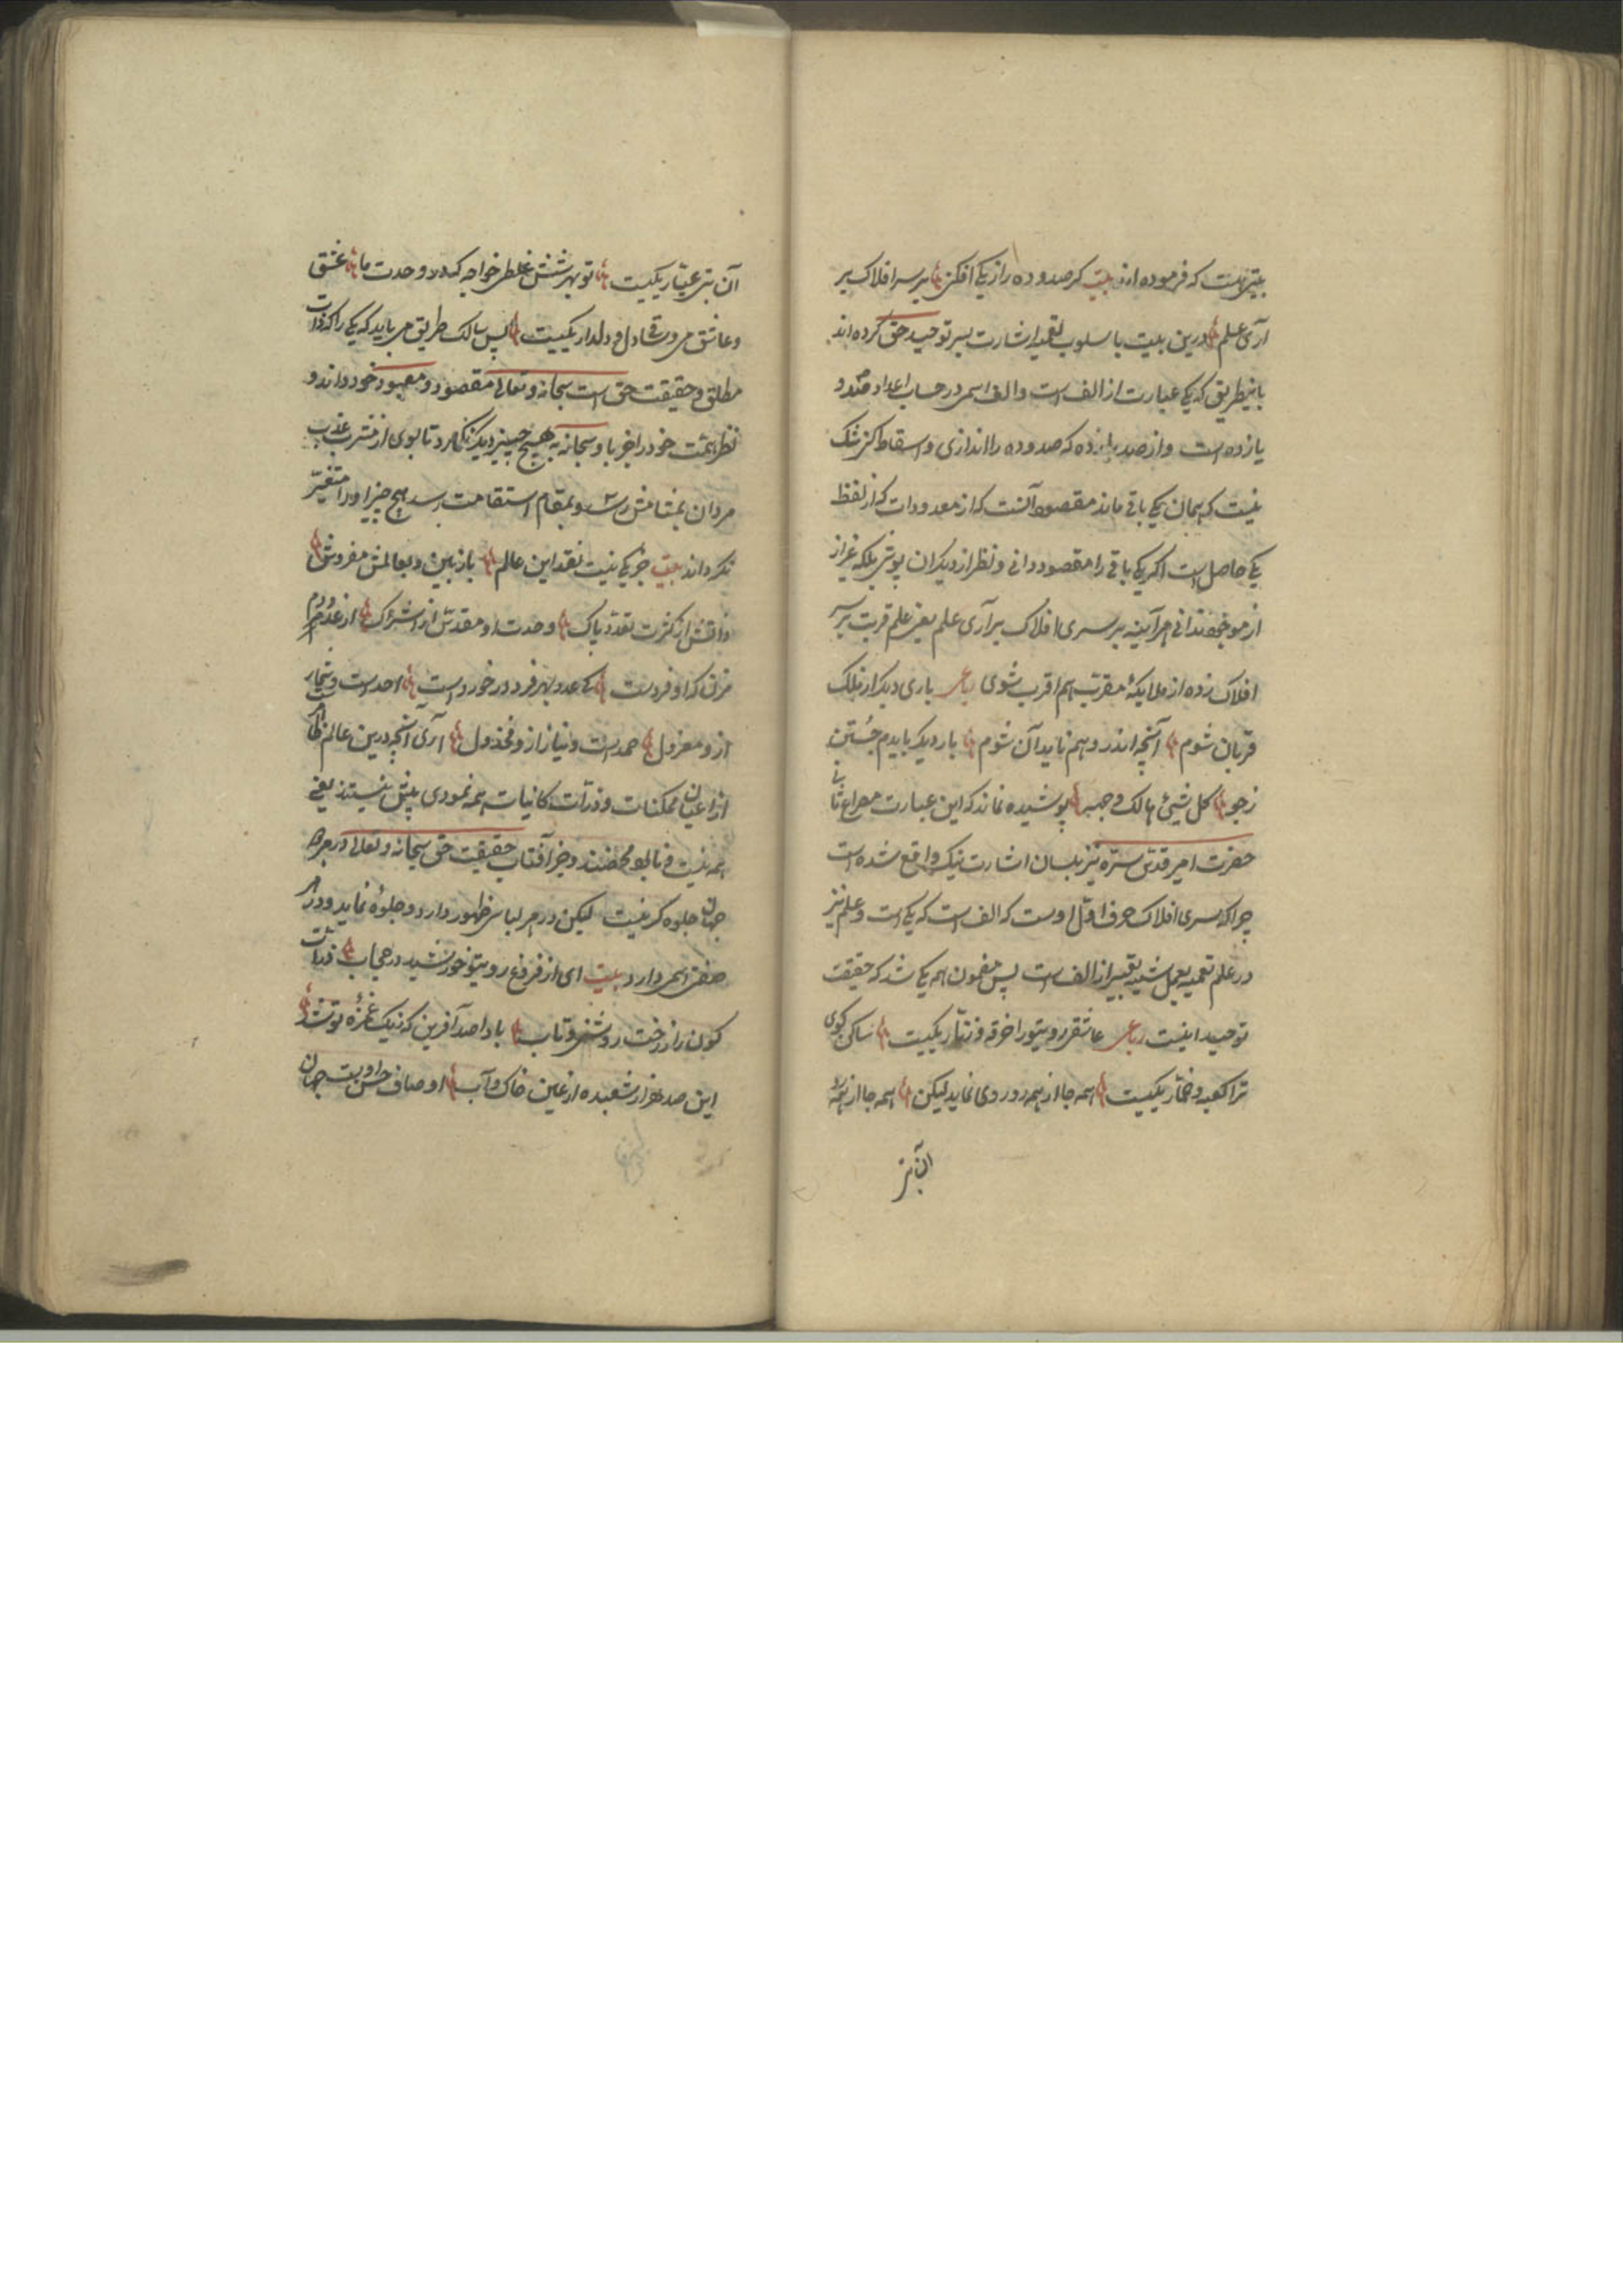 بیتی است که فرموده اند بیت کر صد و ده را از یکی افکنی بر سر افلاک بر
آری علم درین بیت باسلوب تعمیه اشارت بسر توحید حق کرده اند
باینطریق که یکی عبارت از الف است والف اسمی در حساب اعداد صد و
یازده است و از صد یازده که صد و ده را اندازی و اسقاط کنی شک
نیست که همان یکی باقی ماند مقصود آنست که از معدودات که از لفظ
یکی حاصل است اکر یکی باقی را مقصود دانی و نظر از دیکران پوشی بلکه غیر از
موجود ندانی هر آینه بر سری افلاک بر آری علم یعنی علم قربت بر سر
افلاک زده از ملایکۀ مقرب هم اقرب شوی رباعی باری دیکر از فلک
قربان شوم آنچه اندر وهم ناید آن شوم بار دیکر بایدم جستن
زجو کل شیئ هالک وجهه پوشیده نماند که این عبارت مصراع ثانی
حضرت امیر قدس سره نیز بلسان اشارت نیک واقع شده است
چرا که سری افلاک حرف اول اوست که الف است که یکی است و علم نیز
در علم تعمیه بعمل تشبیه تعبیر از الف است پس مضمون همه یکی شد که حقیقت
توحید اینست رباعی عاشق روی تو را خرقه و زنار یکیست ساکن کوی
ترا کعبه و خمار یکیست همه جا از همه رو روی نماید لیکن همه جا از همه
آن بت
آن بت عیار یکیست تو بهر شش غلطی خواجه که در وحدت ما عشق
و عاشق می و ساقی دل و دلدار یکیست پس سالک طریق می باید که یکی را که ذات
مطلق و حقیقت حق است سبحانه و تعالی مقصود و معبود خود داند و
نظر همت خود را جز باو سبحانه بهیچ چیز دیکر نکمارد تا بوی از مشرب عذب
مردان بمشامش رسد و بمقام استقامت رسد هیچ چیز او را متغیر
نکرداند بیت جز یکی نیست نقد این عالم باز بین و بعالمش مفروش
ذاتش از کثرت تعدد پاک وحدت او مقدس از اشراک از عدد دم
مزن که او فردست کی عدد بهر فرد در خورد است احدست و شمار
ازو معزول صمدست و نیاز ازو مخذول آری آنچه درین عالم ظاهر
از اعیان ممکنات و ذرات کاینات همه نمودی بیش نیستند یعنی
همه نیست و نابود محضند و جز آفتاب حقیقت حق سبحانه و تعالی در هر دو
جهان جلوه کر نیست لیکن در هر لباس ظهور دارد و جلوه نماید و در هر
صفتی اسمی دارد بیت ای از فروغ رویت خورشید در حجاب ذرات
کون را ز رخت روشنی و تاب بادا صد آفرین که بنیک غمزه تو شد
این صد هزار شعبده از عین خاک و آب اوصاف حسن اوست جهان